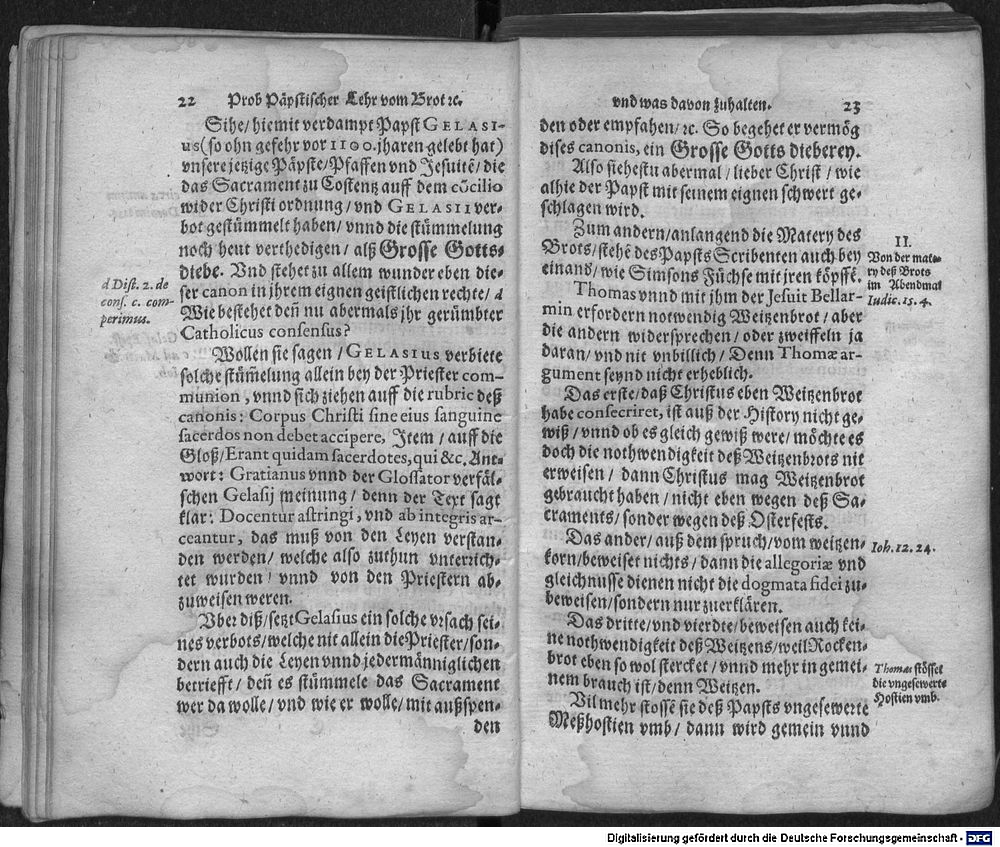 22 Prob Päpstischer Lehr vom Brot ꝛc.
Sihe/ hiemit verdampt Papst GELASI-
us (so ohn gefehr vor 1100. jharen gelebt hat)
vnsere jetzige Päpste/ Pfaffen vnd Jesuitẽ/ die
das Sacrament zu Costentz auff dem cõcilio
wider Christi ordnung/ vnd GELASII ver-
bot gestümmelt haben/ vnnd die stümmelung
noch heut verthedigen/ alß Grosse Gotts-
diebe. Vnd stehet zu allem wunder eben die-
ser canon in jhrem eignen geistlichen rechte/ d
Wie bestehet deñ nu abermals jhr gerümbter
Catholicus consensus?
d Dist. 2. de
cons. c. com-
perimus.
Wollen sie sagen/ GELASIUS verbiete
solche stüm̃elung allein bey der Priester com-
munion, vnnd sich ziehen auff die rubric deß
canonis: Corpus Christi sine eius sanguine
sacerdos non debet accipere, Item/ auff die
Gloß/ Erant quidam sacerdotes, qui &c. Ant-
wort: Gratianus vnnd der Glossator verfäl-
schen Gelasij meinung/ denn der Text sagt
klar: Docentur astringi, vnd ab integris ar-
ceantur, das muß von den Leyen verstan-
den werden/ welche also zuthun vnterrich-
tet wurden/ vnnd von den Priestern ab-
zuweisen weren.
Vber diß/ setzt Gelasius ein solche vrsach sei-
nes verbots/ welche nit allein die Priester/ son-
dern auch die Leyen vnnd jedermänniglichen
betriefft/ deñ es stümmele das Sacrament
wer da wolle/ vnd wie er wolle/ mit außspen-
den
vnd was davon zuhalten. 23
den oder empfahen/ ꝛc. So begehet er vermög
dises canonis, ein Grosse Gotts dieberey.
Also siehestu abermal/ lieber Christ/ wie
alhie der Papst mit seinem eignen schwert ge-
schlagen wird.
Zum andern/ anlangend die Matery des
Brots/ stehẽ des Papsts Scribenten auch bey
einand/ wie Simsons Füchse mit jren köpffẽ.
II.
Von der mate-
ry deß Brots
im Abendmal
Iudic. 15. 4.
Thomas vnnd mit jhm der Jesuit Bellar-
min erfordern notwendig Weitzenbrot/ aber
die andern widersprechen/ oder zweiffeln ja
daran/ vnd nit vnbillich/ Denn Thomæ ar-
gument seynd nicht erheblich.
Das erste/ daß Christus eben Weitzenbrot
habe consecriret, ist auß der History nicht ge-
wiß/ vnnd ob es gleich gewiß were/ möchte es
doch die nothwendigkeit deß Weitzenbrots nit
erweisen/ dann Christus mag Weitzenbrot
gebraucht haben/ nicht eben wegen deß Sa-
craments/ sonder wegen deß Osterfests.
Das ander/ auß dem spruch/ vom weitzen-
korn/ beweiset nichts/ dann die allegoriæ vnd
gleichnusse dienen nicht die dogmata fidei zu-
beweisen/ sondern nur zuerklären.
Ioh. 12. 24.
Das dritte/ vnd vierdte/ beweisen auch kei-
ne nothwendigkeit deß Weitzens/ weil Rocken-
brot eben so wol stercket/ vnnd mehr in gemei-
nem brauch ist/ denn Weitzen.
Thomas stösset
die vngesewerte
Hostien vmb.
Vil mehr stossẽ sie deß Papsts vngesewerte
Meßhostien vmb/ dann wird gemein vnnd
Digitalisierung gefördert durch die Deutsche Forschungsgemeinschaft - DFG